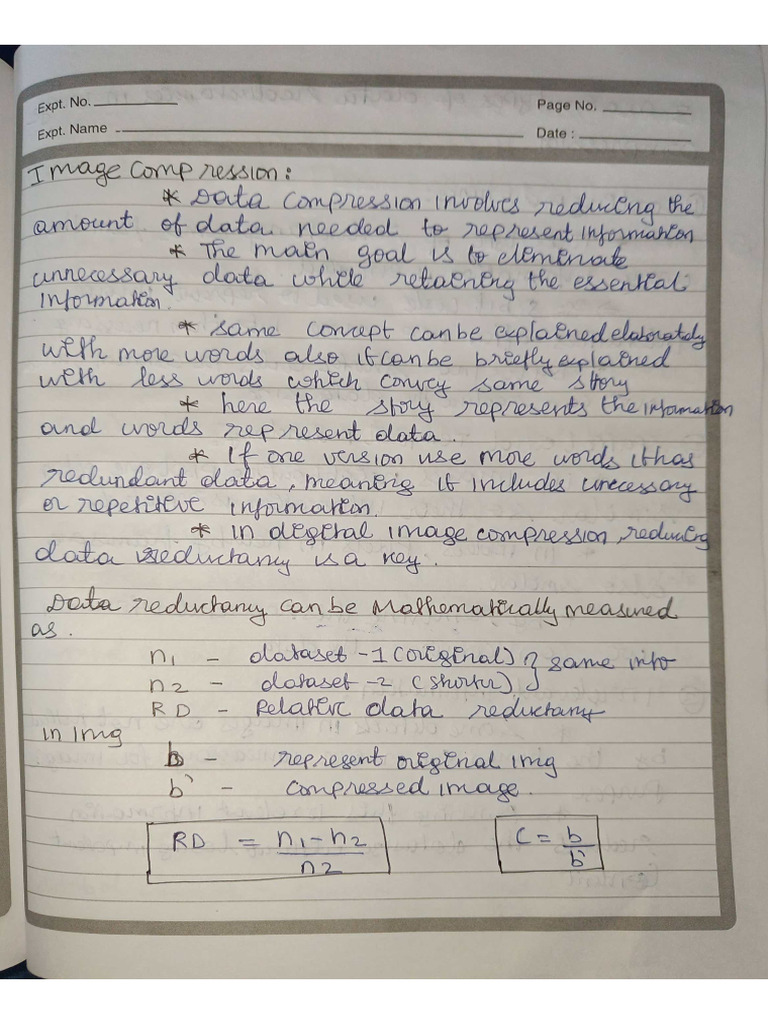 Expt. No.
Page No.
Expt. Name
Date :
Image Compression:
* Data compression involves reducing the
amount of data needed to represent information
* The main goal is to eleminate
unnecessary data while retaining the essential
Information.
* same concept can be explained elaborately
with more words also it can be briefly explained
with less words which convey same story
* here the story represents the information
and words represent data.
* If one version use more words it has
redundant data, meaning it includes unecessary
or repetitive information.
* in digital image compression, reducing
data reductancy is a key.
Data reductancy can be Mathematically measured
as.
n1 - dataset -1 (original) } same info
n2 - dataset -2 (shorter)
RD - Relative data reductancy
in img
b - represent original img
b' - compressed image.
RD = n1-n2 / n2
C = b / b'